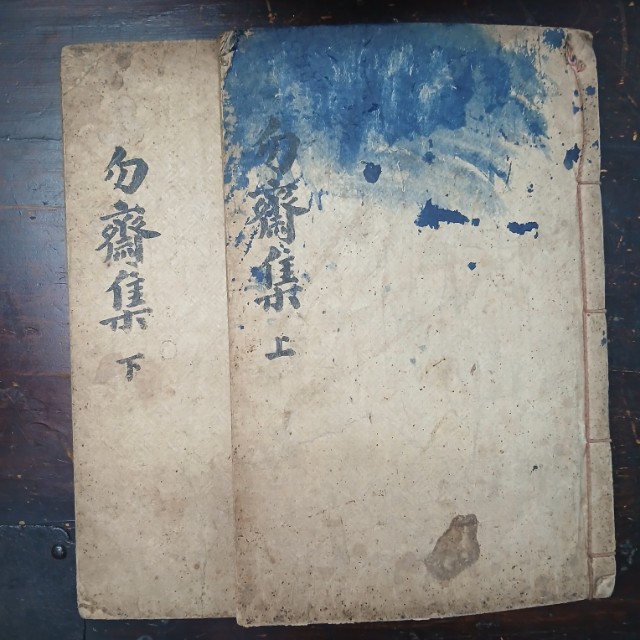 勿齋集 上
勿齋集 下